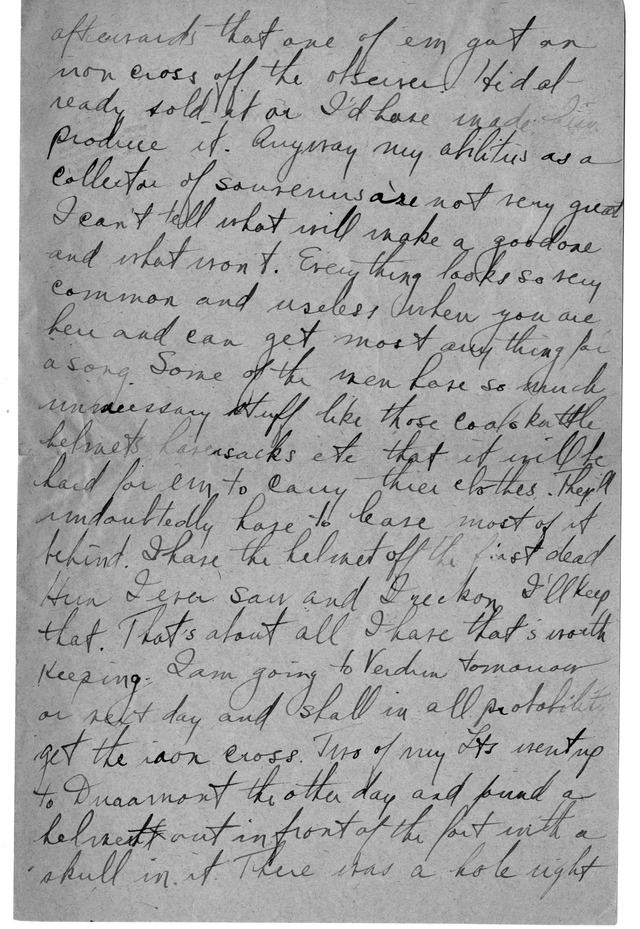 afterwards that one of em got an
iron cross off the observer. Hed al
ready sold it or I'd have made him
produce it. Anyway my abilities as a
collector of souvenirs are not very great
I can't tell what will make a good one
and what won't. Everything looks so very
common and useless when you are
here and can get most anything for
a song. Some of the men have so much
unnecessary stuff like those coalskuttle
helmets haversacks etc that it will be
hard for em to carry thier clothes. They'll
undoubtedly have to leave most of it
behind. I have the helmet off the first dead
Hun I ever saw and I reckon I'll keep
that. That's about all I have that's worth
keeping. I am going to Verdun tomorrow
or next day and shall in all probability
get the iron cross. Two of my Lts went up
to Duaamont the other day and found a
helmet out in front of the fort with a
skull in it. There was a hole right